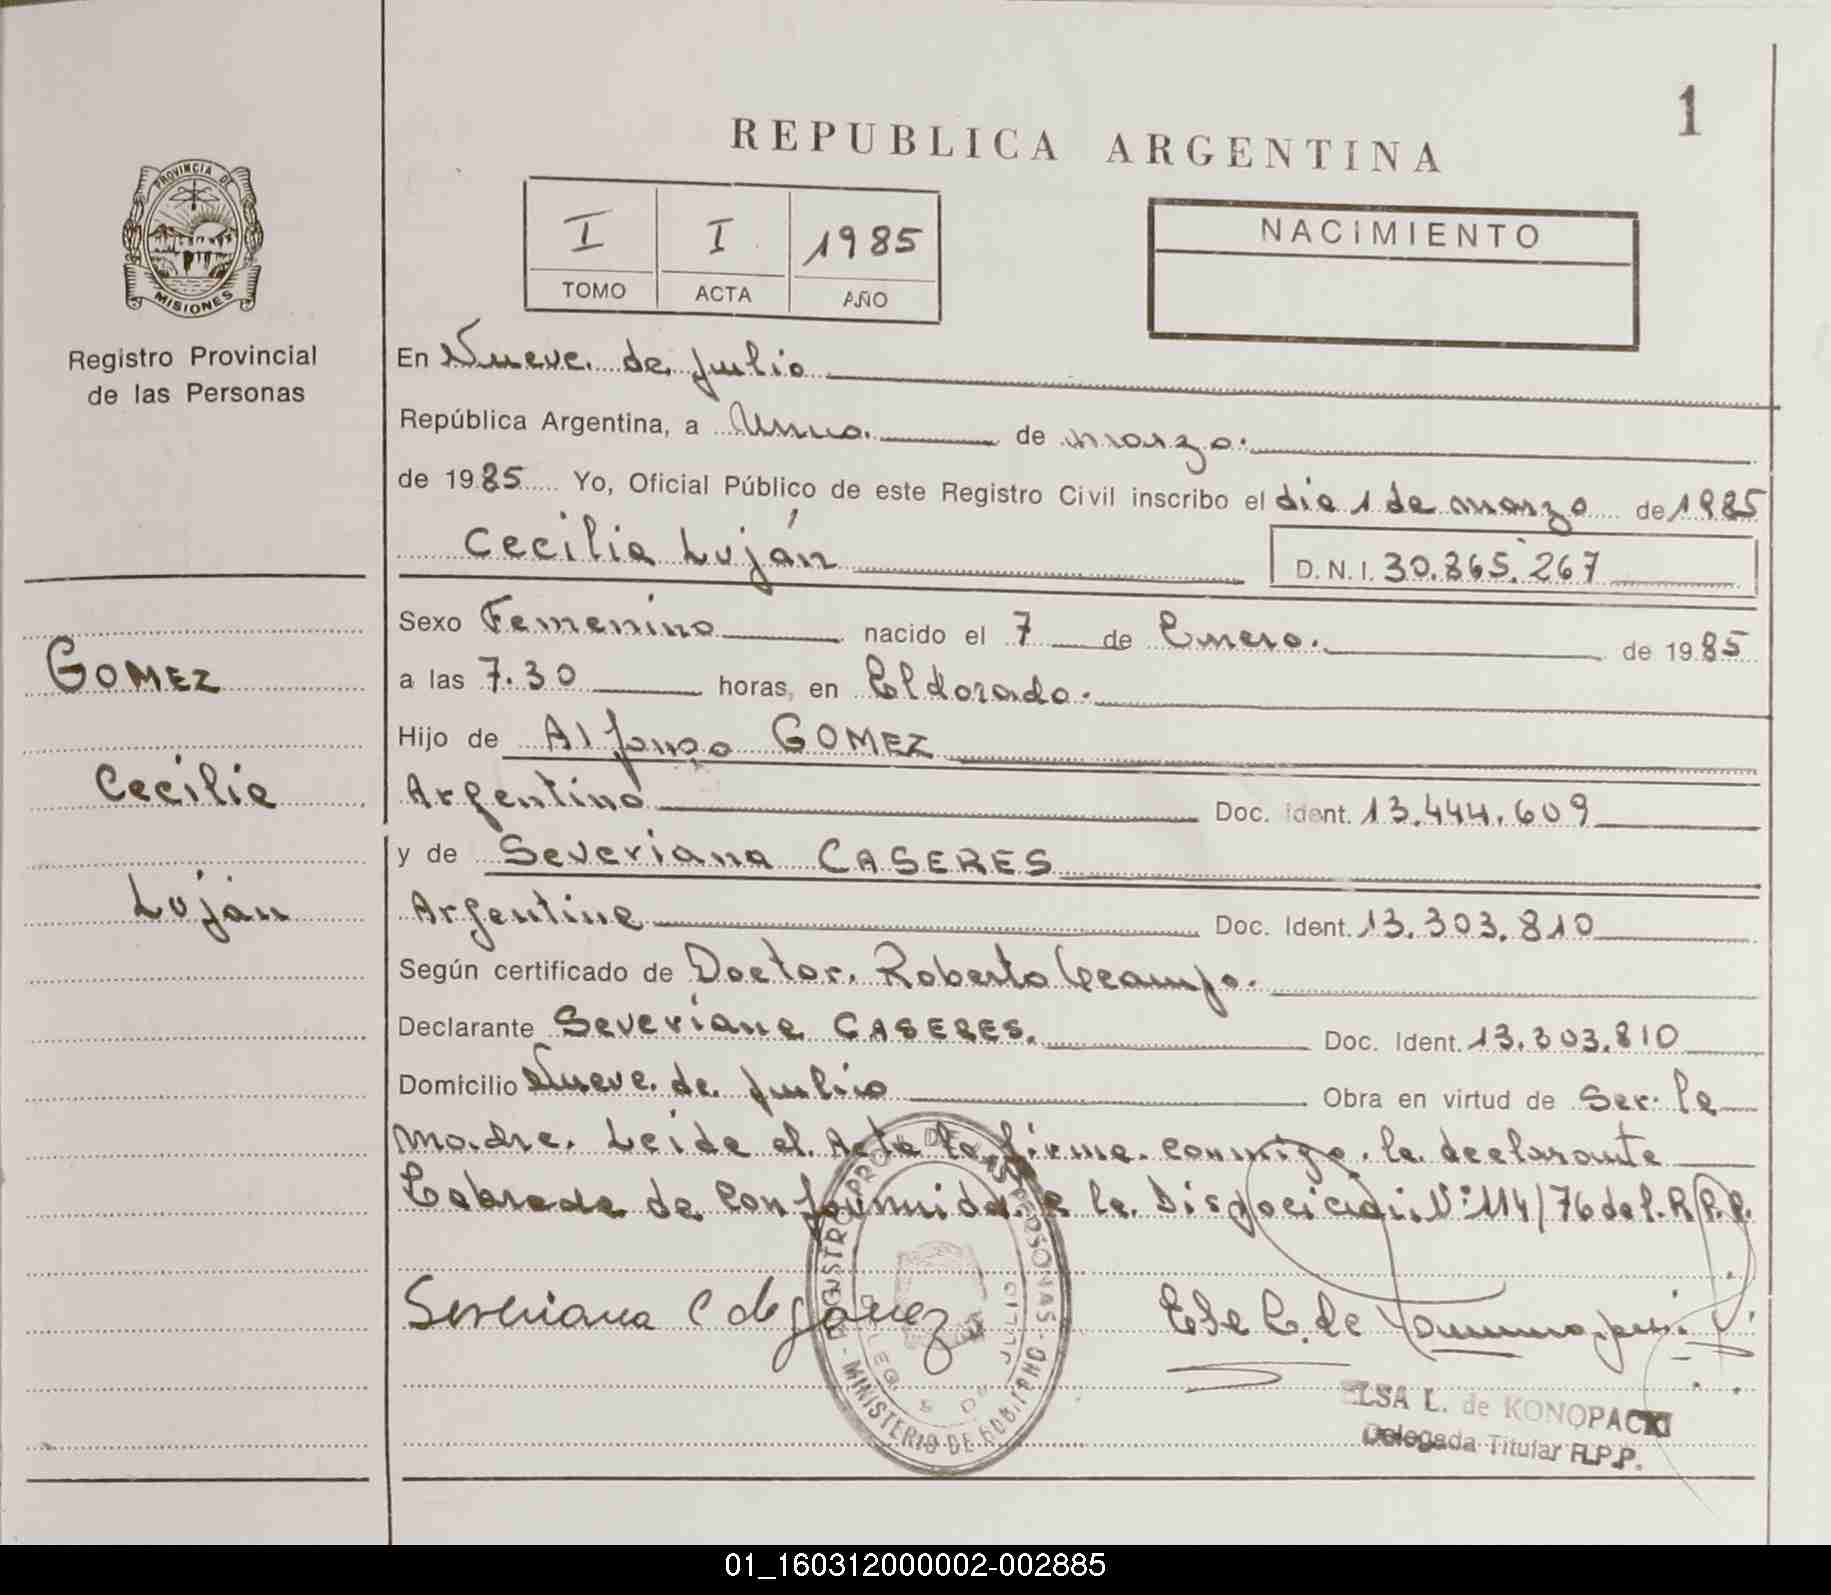 1
REPUBLICA ARGENTINA
PROVINCIA DE
MISIONES
I I 1985
TOMO ACTA AÑO
NACIMIENTO
Registro Provincial
de las Personas
En Nueve de Julio
República Argentina, a Uno de marzo.
de 1985 Yo, Oficial Público de este Registro Civil inscribo el dia 1 de marzo de 1985
Cecilia Luján D.N.I. 30.865.267
Sexo Femenino nacido el 7 de Enero. de 1985
GOMEZ
a las 7.30 horas, en Eldorado.
Hijo de Alfonso GOMEZ
Cecilia
Argentino Doc. Ident. 13.444.609
y de Severiana CASERES
Luján
Argentina Doc. Ident. 13.303.810
Según certificado de Doctor. Roberto Ocampo.
Declarante Severiana CASERES. Doc. Ident. 13.303.810
Domicilio Nueve de Julio Obra en virtud de Ser la
madre. Leida el Acta la firma conmigo la declarante
Labrada de conformidad a la Disposición Nº 114/76 del R.P.P.
Severiana C de Gomez
REGISTRO PROV. DE LAS PERSONAS
MINISTERIO DE GOBIERNO
ELSA L. de KONOPACKI
Delegada Titular R.P.P.
01_160312000002-002885